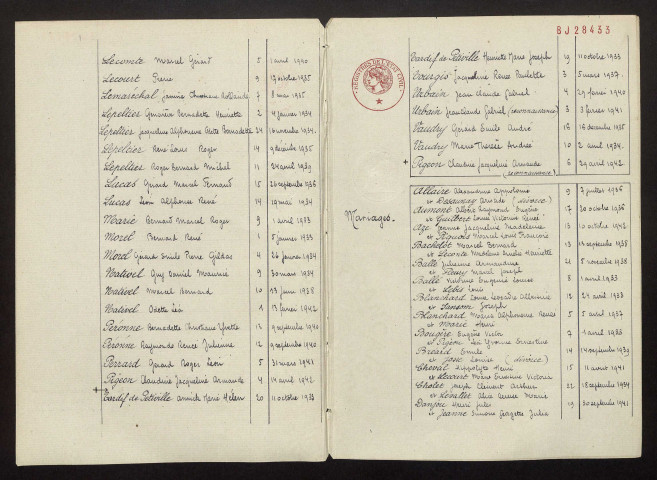 Lecomte Marcel Gérard 5 1 avril 1940
Lecourt Pierre 9 17 octobre 1935
Lemaréchal Janine Christiane 7 8 mai 1935
Lepeltier Ginette Bernadette Henriette 2 4 janvier 1934
Lepeltier Jacqueline Alphonsine Bernadette 24 16 novembre 1934
Lepeltier René Louis Roger 14 9 décembre 1935
Lepeltier Roger Bernard Michel 11 24 avril 1939
Lucas Gérard Marcel Fernand 15 26 septembre 1936
Lucas Léon Alphonse René 14 19 mai 1934
Marie Bernard Marcel Roger 9 1 avril 1933
Morel Bernard René 1 5 janvier 1933
Morel Gérard Emile Pierre Gildas 4 26 janvier 1934
Nativel Guy Daniel Maurice 9 30 mars 1934
Nativel Marcel Bernard 10 13 juin 1938
Nativel Odette Léa 1 13 février 1942
Peronne Bernadette Christiane Yvette 13 9 septembre 1940
Peronne Raymonde Renée Julienne 12 9 septembre 1940
Perrard Gérard Roger Léon 5 31 mars 1943
Pigeon Claudine Jacqueline Armande 4 14 avril 1942
Tardif de Petiville Annick Marie Helen 20 11 octobre 1933
BJ 28433
Tardif de Petiville Henriette Marie Joseph 19 11 octobre 1933
Tourgis Jacqueline Renée Paulette 3 5 mars 1937
Urbain Jean Claude Gabriel 4 29 février 1940
Urbain Jean Claude Gabriel (reconnaissance) 3 3 février 1941
Vaudry Gérard Emile André 16 18 décembre 1935
Vaudry Marie Thérèse Andrée 10 2 avril 1934
+ Pigeon Claudine Jacqueline Armande 6 29 avril 1942
(reconnaissance)
Mariages.
Allaire Alexandrine Appoline 9 7 juillet 1936
et Dasaunay Aristide (divorce)
Aumont Albert Raymond Eugène 17 20 octobre 1936
et Guilbert Louise Victorine
Aze Jeanne Jacqueline Madeleine 13 10 octobre 1942
et Pignois Marcel Louis François
Bachelot Marcel Bernard 13 14 septembre 1938
et Lecomte Madeleine Henriette
Balle Julienne Armandine 21 5 novembre 1938
et Fleury Marcel Joseph
Balle Eugénie Louise 8 1 avril 1933
et Lebis Louis
Blanchard Louise 12 24 avril 1933
et Sanson Joseph
Blanchard Maria Alphonsine Renée 5 5 avril 1937
et Marie Henri
Bougère Eugène Victor 7 1 avril 1933
et Pigeon Léa Yvonne Ernestine
Brérard Emile 14 14 septembre 1939
et Josse Louise (divorce)
Cheval Hippolyte Henri 15 11 avril 1941
et Lecourt Marie Victorine
Cholet Joseph Clément Arthur 22 18 septembre 1934
et Levallet Alice Renée Marie
Danjou Henri Jules 19 30 septembre 1941
et Jeanne Simone Georgette Julia